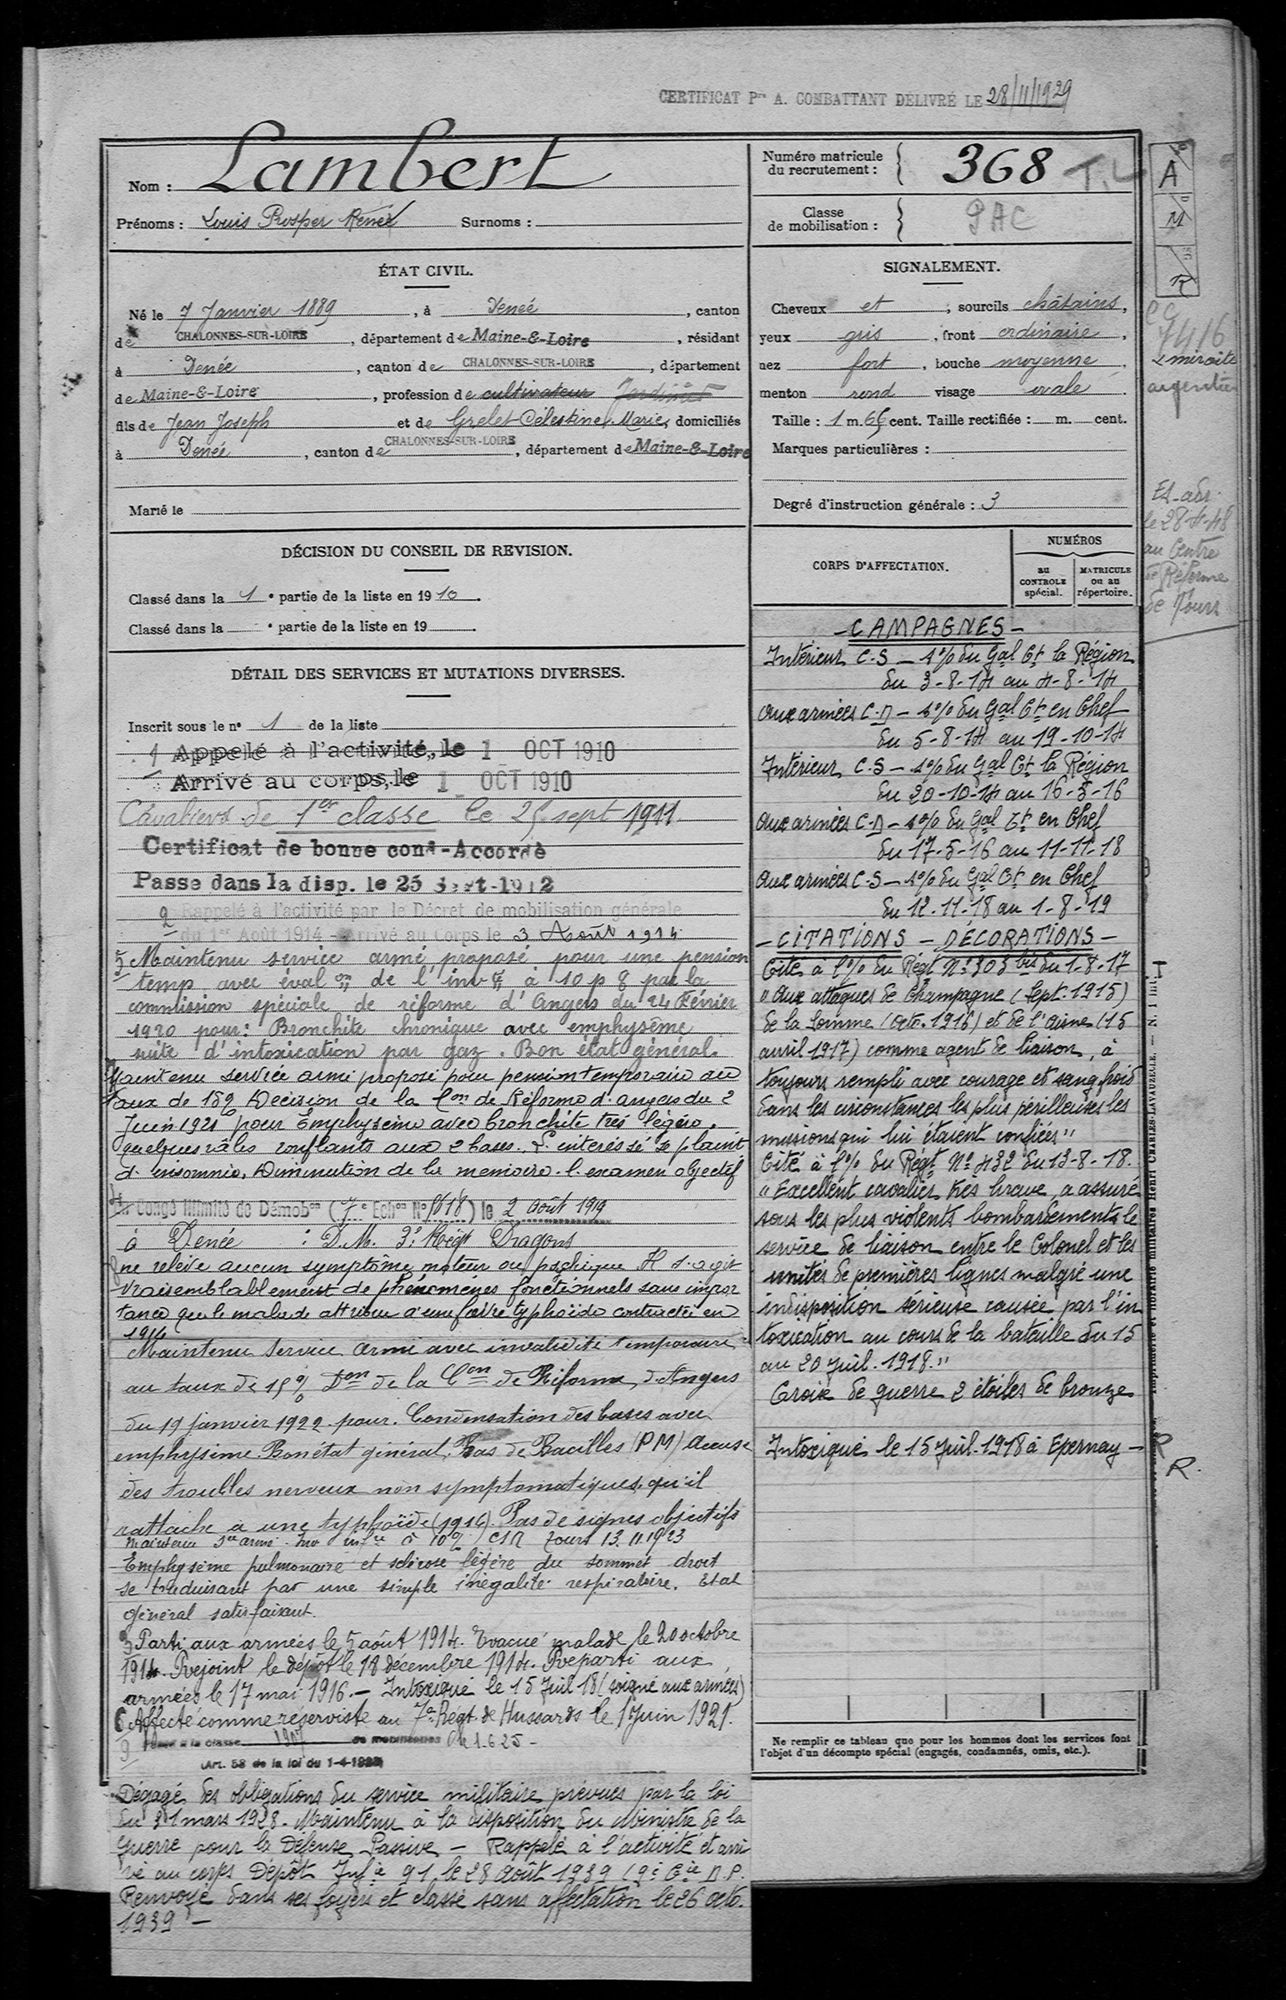 CERTIFICAT Pre A. COMBATTANT DÉLIVRÉ LE 28/11/1929
Nom : Lambert
Prénoms : Louis Prosper René Surnoms :
ÉTAT CIVIL.
Né le 7 Janvier 1889, à Denée, canton
de CHALONNES-SUR-LOIRE, département de Maine-&-Loire, résidant
à Denée, canton de CHALONNES-SUR-LOIRE, département
de Maine-&-Loire, profession de cultivateur Jardinier
fils de Jean Joseph et de Grelet Célestine, Marie, domiciliés
à Denée, canton de CHALONNES-SUR-LOIRE, département de Maine-&-Loire
Marié le
DÉCISION DU CONSEIL DE REVISION.
Classé dans la 1e partie de la liste en 1910.
Classé dans la e partie de la liste en 19
DÉTAIL DES SERVICES ET MUTATIONS DIVERSES.
Inscrit sous le n° 1 de la liste
1 Appelé à l'activité, le 1 OCT 1910
Arrivé au corps, le 1 OCT 1910
Cavalier de 1er classe le 25 sept 1911.
Certificat de bonne cond-Accordé
Passe dans la disp. le 25 Sept-1912
2 Rappelé à l'activité par le Décret de mobilisation générale
du 1er Août 1914 - Arrivé au Corps le 3 Août 1914
Maintenu service armé proposé pour une pension
temp avec évalon de l'invté à 10 p % par la
commission spéciale de réforme d'Angers du 24 Février
1920 pour : Bronchite chronique avec emphysème
suite d'intoxication par gaz. Bon état général.
Maintenu service armé proposé pour pension temporaire au
taux de 15% Décision de la Con de Réforme d'Angers du 2
Juin 1921 pour Emphysème avec bronchite très légère.
quelques râles ronflants aux 2 bases. L'intéressé se plaint
d'insomnie. Diminution de la mémoire. l'examen objectif
En Congé Illimité de Démobon (7e Echon No 1818) le 2 Août 1919
à Denée : D.M. 3e Régt Dragons
ne relève aucun symptôme moteur ou psychique Il s'agit
vraisemblablement de phénomènes fonctionnels sans impor
tance que le malade attribue à une fièvre typhoïde contractée en
1914
Maintenu Service armé avec invalidité temporaire
au taux de 15% Don de la Con de Réforme, d'Angers
du 19 janvier 1922 pour. Condensation des bases avec
emphysème. Bon état général. Pas de Bacilles (PM) Accuse
des troubles nerveux non symptomatiques qu'il
rattache à une typhoïde (1914). Pas de signes objectifs
Maintenu Sce armé 10% CSR Tours 13.11.1923
Emphysème pulmonaire et sclérose légère du sommet droit
se traduisant par une simple inégalité respiratoire. Etat
général satisfaisant.
3 Parti aux armées le 5 août 1914. Evacué malade le 20 octobre
1914. Rejoint le dépôt le 18 décembre 1914. Reparti aux
armées le 17 mai 1916. — Intoxiqué le 15 Juil 18 (soigné aux armées)
6 Affecté comme réserviste au 7e Régt de Hussards le 1 Juin 1921.
9 Passé à la classe 1907 de mobilisation du 1.6.25 -
(Art. 58 de la loi du 1-4-1923)
Dégagé des obligations du service militaire prévues par la loi
du 31 mars 1928. Maintenu à la disposition du Ministre de la
Guerre pour la Défense Passive — Rappelé à l'activité et arri
vé au corps Dépôt Infie 91, le 28 Août 1939 (9e Cie D.P.
Renvoyé dans ses foyers et classé sans affectation le 26 octo.
1939 —
Numéro matricule
du recrutement : 368 T.L
Classe
de mobilisation : PAC
SIGNALEMENT.
Cheveux et, sourcils châtains,
yeux gris, front ordinaire,
nez fort, bouche moyenne,
menton rond visage ovale.
Taille : 1 m. 66 cent. Taille rectifiée : m. cent.
Marques particulières :
Degré d'instruction générale : 3
CORPS D'AFFECTATION.
NUMÉROS
au
CONTROLE
spécial.
MATRICULE
ou au
répertoire.
- CAMPAGNES -
Intérieur C.S — s% du Gal Ct la Région
du 3-8-14 au 4-8-14
Aux armées C.D — s% du Gal Ct en Chef
du 5-8-14 au 19-10-14
Intérieur C.S — s% du Gal Ct la Région
du 20-10-14 au 16-5-16
Aux armées C.D — s% du Gal Ct en Chef
du 17-5-16 au 11-11-18
Aux armées C.S — s% du Gal Ct en Chef
du 12-11-18 au 1-8-19
- CITATIONS - DÉCORATIONS -
Cité à l'% du Régt N° 303 bis du 1-8-17
"Aux attaques de Champagne (Sept. 1915)
de la Somme (Octo. 1916) et de l'Aisne (15
avril 1917) comme agent de liaison, a
toujours rempli avec courage et sang froid
dans les circonstances les plus périlleuses les
missions qui lui étaient confiées"
Cité à l'% du Régt N° 432 du 13-8-18.
"Excellent cavalier, très brave, a assuré
sous les plus violents bombardements le
service de liaison entre le Colonel et les
unités de premières lignes malgré une
indisposition sérieuse causée par l'in
toxication au cours de la bataille du 15
au 20 Juil. 1918."
Croix de guerre 2 étoiles de bronze
Intoxiqué le 15 Juil. 1918 à Epernay —
Ne remplir ce tableau que pour les hommes dont les services font
l'objet d'un décompte spécial (engagés, condamnés, omis, etc.).
A
M
R
7416
Et-adr.
le 28-4-48
au Centre
de Réforme
de Tours
R
R.